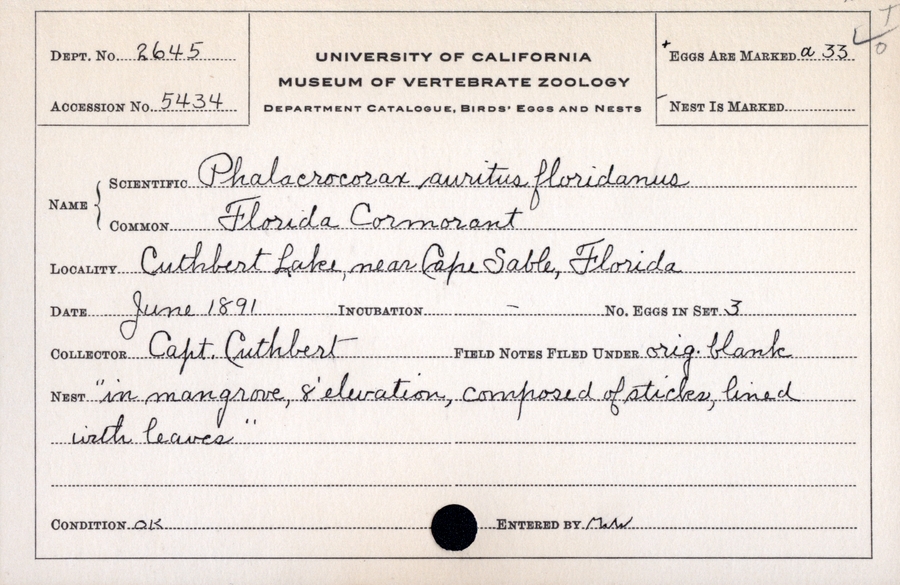 Dept. No. 2645
Accession No. 5434
UNIVERSITY OF CALIFORNIA
MUSEUM OF VERTEBRATE ZOOLOGY
Department Catalogue, Birds' Eggs and Nests
+ Eggs Are Marked a 33
- Nest Is Marked
T
O
Name { Scientific Phalacrocorax auritus floridanus
Common Florida Cormorant
Locality Cuthbert Lake, near Cape Sable, Florida
Date June 1891 Incubation - No. Eggs in Set 3
Collector Capt. Cuthbert Field Notes Filed Under orig. blank
Nest "in mangrove, 8' elevation, composed of sticks, lined
with leaves"
Condition OK Entered by